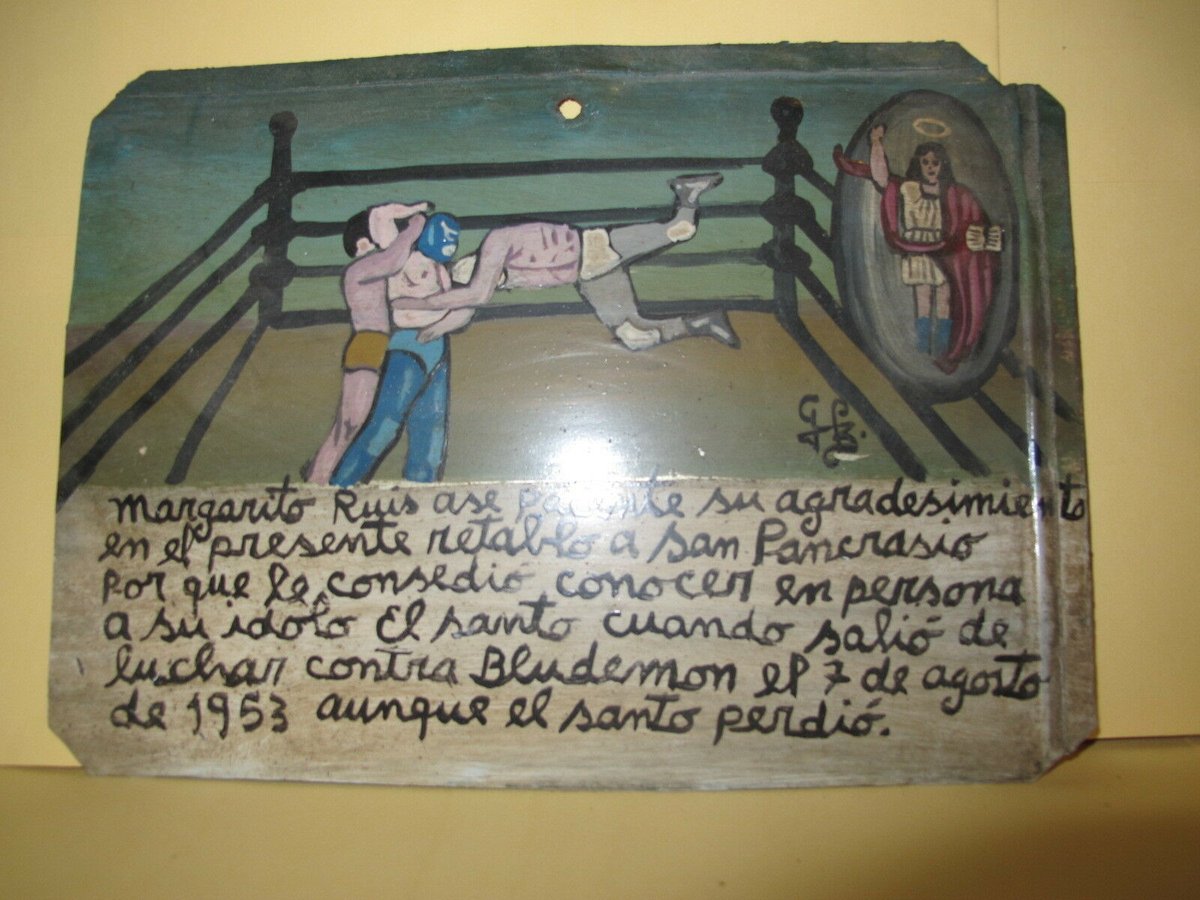 Margarito Ruis ase patente su agradesimiento
en el presente retablo a San Pancrasio
Por que le consedió conocer en persona
a su idolo El santo cuando salió de
luchar contra Bludemon el 7 de agosto
de 1953 aunque el santo perdió.